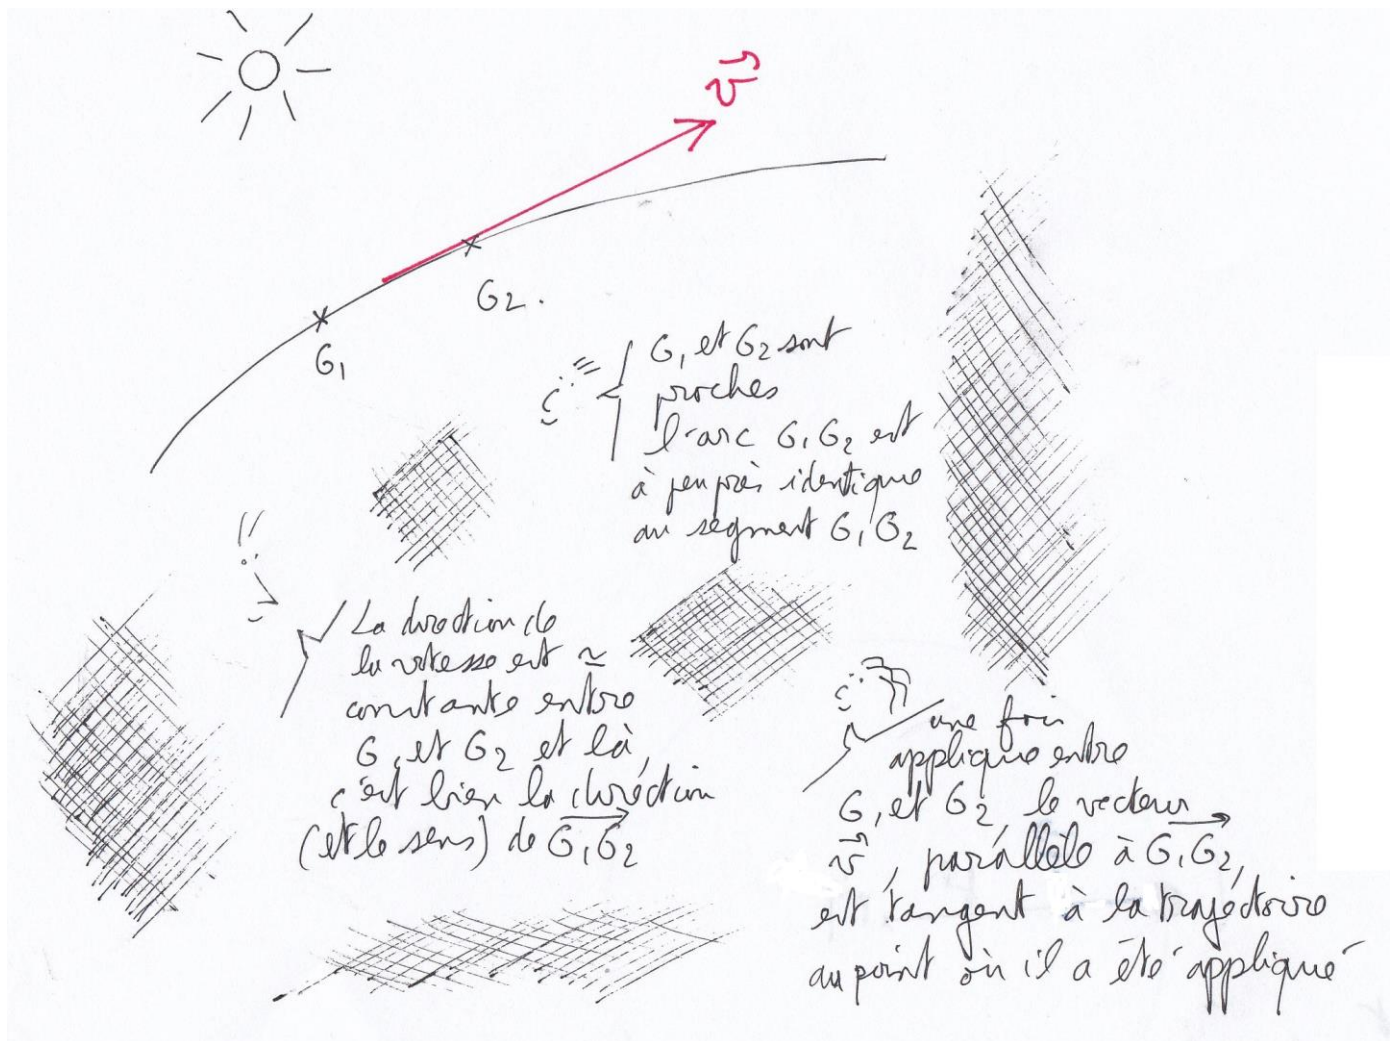 v⃗
G₂.
G₁
G₁ et G₂ sont
proches
l'arc G₁G₂ est
à peu près identique
au segment G₁G₂
La direction de
la vitesse est ≃
constante entre
G₁ et G₂ et là,
c'est bien la direction
(et le sens) de G₁G₂
une fois
appliqué entre
G₁ et G₂, le vecteur
v⃗, parallèle à G₁G₂,
est tangent à la trajectoire
au point où il a été appliqué